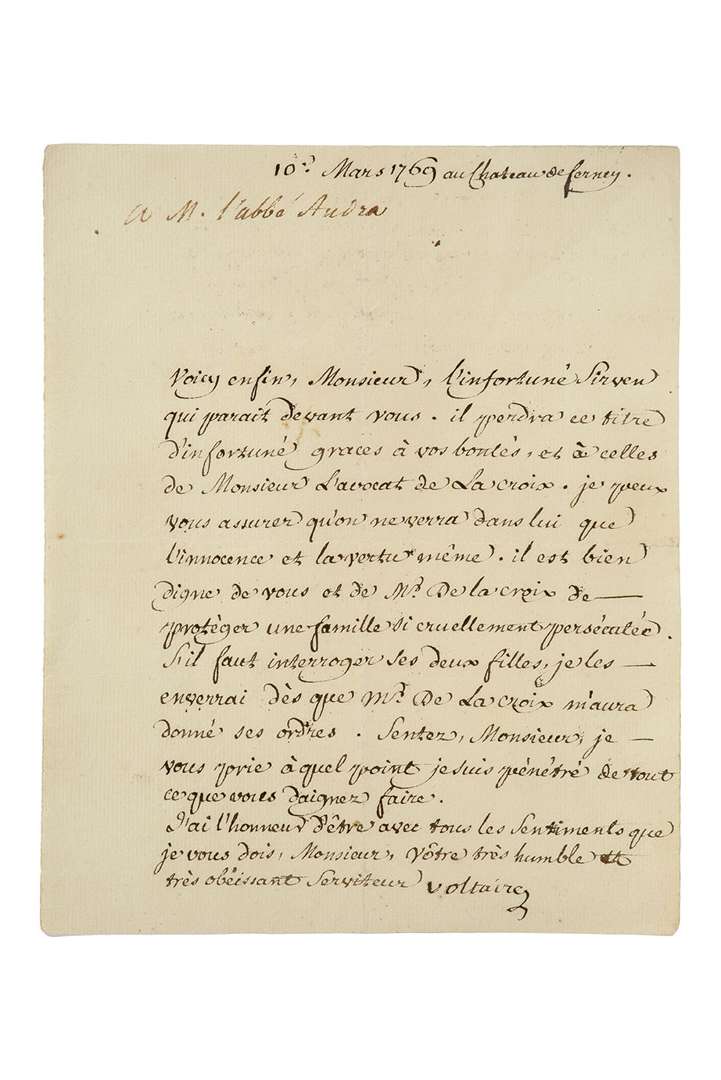 10.e Mars 1769 au Chateau de ferney.
a M. l'abbé Audra
Voicy enfin, Monsieur, l'infortuné Sirven
qui parait devant vous. il perdra ce titre
d'infortuné graces à vos bontés, et à celles
de Monsieur L'avocat de La Croix. je peux
vous assurer qu'on ne verra dans lui que
l'innocence et la vertu même. il est bien
digne de vous et de Mr. De la croix de —
protèger une famille si cruellement persécutée.
S'il faut interroger ses deux filles, je les —
enverrai dès que Mr. De La Croix m'aura
donné ses ordres. Sentez, Monsieur, je —
vous prie à quel point je suis pénétré de tout
ce que vous daignez faire.
J'ai l'honneur d'être avec tous les sentiments que
je vous dois, Monsieur, Vôtre très humble et
très obéissant Serviteur Voltaire